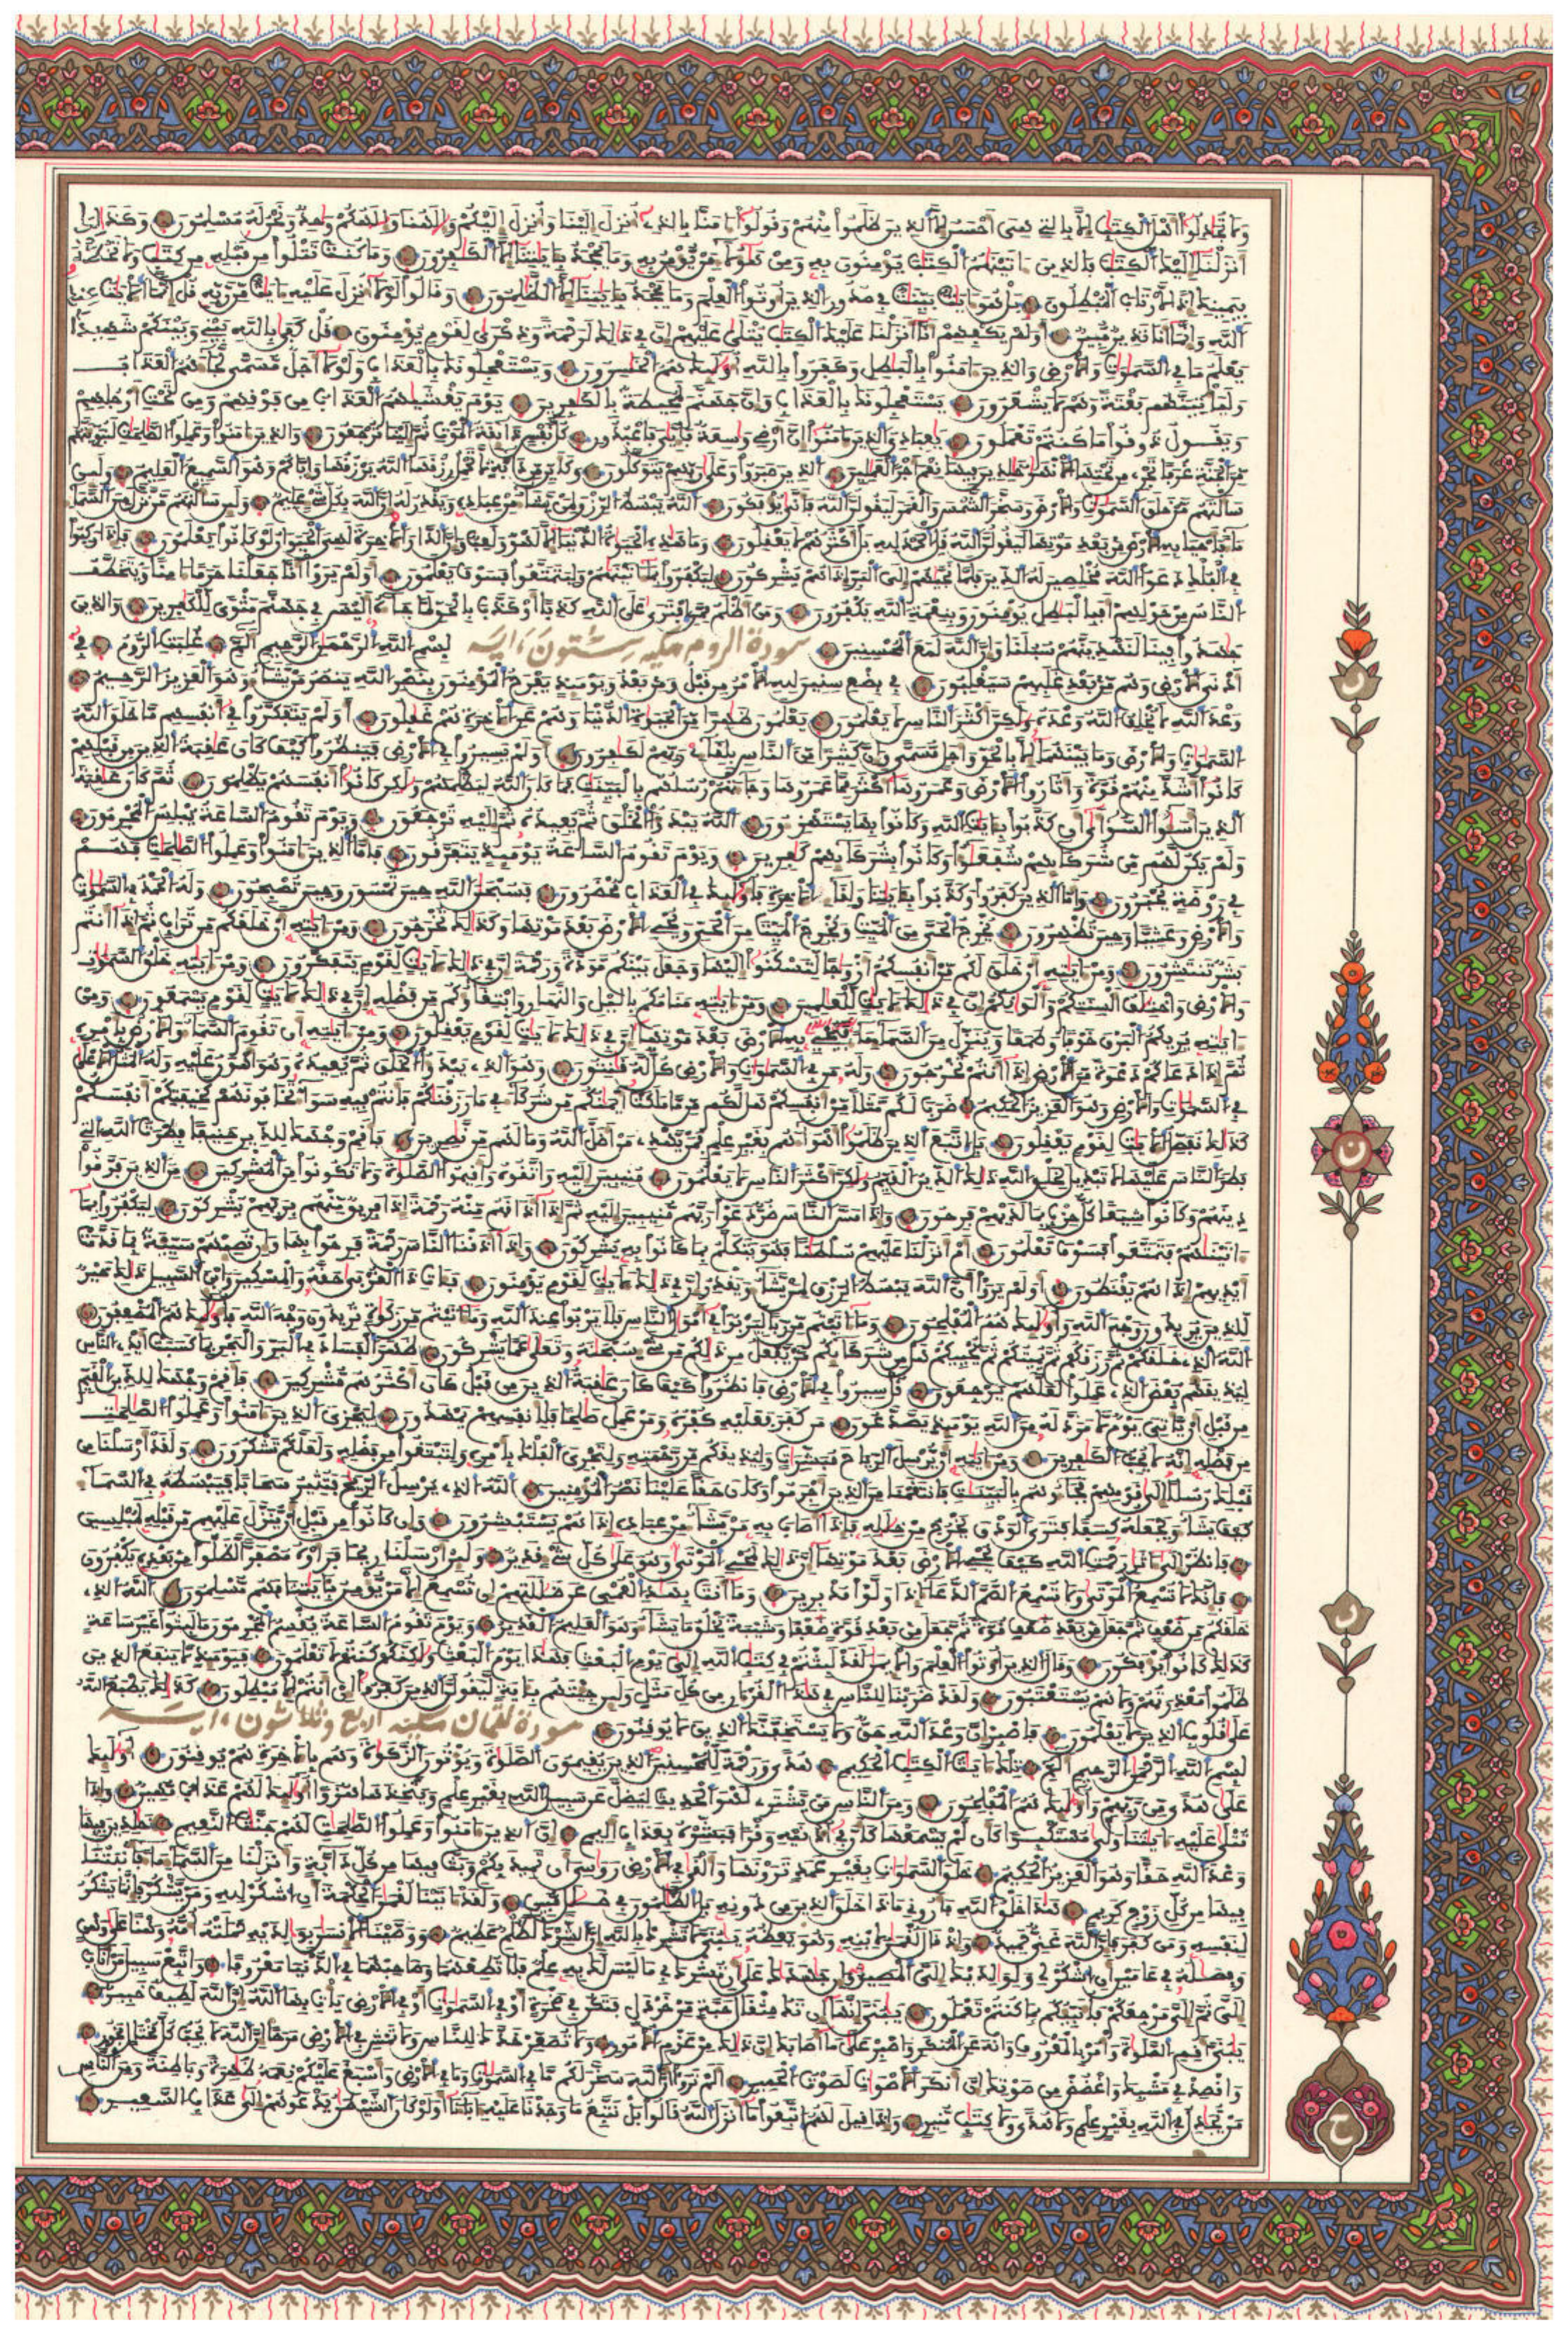 وما تجدلوا أهل الكتب إلا بالتي هي أحسن إلا الذين ظلموا منهم وقولوا ءامنا بالذي أنزل إلينا وأنزل إليكم وإلهنا وإلهكم وحد ونحن له مسلمون وكذلك
أنزلنا إليك الكتب فالذين ءاتينهم الكتب يؤمنون به ومن هؤلاء من يؤمن به وما يجحد بئايتنا إلا الكفرون وما كنت تتلوا من قبله من كتب ولا تخطه
بيمينك إذا لارتاب المبطلون بل هو ءايت بينت في صدور الذين أوتوا العلم وما يجحد بئايتنا إلا الظلمون وقالوا لولا أنزل عليه ءايت من ربه قل إنما الايت عند
الله وإنما أنا نذير مبين أولم يكفهم أنا أنزلنا عليك الكتب يتلى عليهم إن في ذلك لرحمة وذكرى لقوم يؤمنون قل كفى بالله بيني وبينكم شهيدا
يعلم ما في السموت والارض والذين ءامنوا بالبطل وكفروا بالله أولئك هم الخسرون ويستعجلونك بالعذاب ولولا أجل مسمى لجاءهم العذاب
وليأتينهم بغتة وهم لا يشعرون يستعجلونك بالعذاب وإن جهنم لمحيطة بالكفرين يوم يغشيهم العذاب من فوقهم ومن تحت أرجلهم
ويقول ذوقوا ما كنتم تعملون يعبادي الذين ءامنوا إن أرضي وسعة فإيي فاعبدون كل نفس ذائقة الموت ثم إلينا ترجعون والذين ءامنوا وعملوا الصلحت لنبوئنهم
من الجنة غرفا تجري من تحتها الانهر خلدين فيها نعم أجر العملين الذين صبروا وعلى ربهم يتوكلون وكأين من دابة لا تحمل رزقها الله يرزقها وإياكم وهو السميع العليم ولئن
سألتهم من خلق السموت والارض وسخر الشمس والقمر ليقولن الله فأنى يؤفكون الله يبسط الرزق لمن يشاء من عباده ويقدر له إن الله بكل شيء عليم ولئن سألتهم من نزل من السماء
ماء فأحيا به الارض من بعد موتها ليقولن الله قل الحمد لله بل أكثرهم لا يعقلون وما هذه الحيوة الدنيا إلا لهو ولعب وإن الدار الاخرة لهي الحيوان لو كانوا يعلمون فإذا ركبوا
في الفلك دعوا الله مخلصين له الدين فلما نجيهم إلى البر إذا هم يشركون ليكفروا بما ءاتينهم وليتمتعوا فسوف يعلمون أولم يروا أنا جعلنا حرما ءامنا ويتخطف
الناس من حولهم أفبالبطل يؤمنون وبنعمة الله يكفرون ومن أظلم ممن افترى على الله كذبا أو كذب بالحق لما جاءه أليس في جهنم مثوى للكفرين والذين
جهدوا فينا لنهدينهم سبلنا وإن الله لمع المحسنين سورة الروم مكية ستون ءاية بسم الله الرحمن الرحيم الم غلبت الروم في
أدنى الارض وهم من بعد غلبهم سيغلبون في بضع سنين لله الامر من قبل ومن بعد ويومئذ يفرح المؤمنون بنصر الله ينصر من يشاء وهو العزيز الرحيم
وعد الله لا يخلف الله وعده ولكن أكثر الناس لا يعلمون يعلمون ظهرا من الحيوة الدنيا وهم عن الاخرة هم غفلون أولم يتفكروا في أنفسهم ما خلق الله
السموت والارض وما بينهما إلا بالحق وأجل مسمى وإن كثيرا من الناس بلقاء ربهم لكفرون أولم يسيروا في الارض فينظروا كيف كان عقبة الذين من قبلهم
كانوا أشد منهم قوة وأثاروا الارض وعمروها أكثر مما عمروها وجاءتهم رسلهم بالبينت فما كان الله ليظلمهم ولكن كانوا أنفسهم يظلمون ثم كان عقبة
الذين أسئوا السوأى أن كذبوا بئايت الله وكانوا بها يستهزءون الله يبدؤا الخلق ثم يعيده ثم إليه ترجعون ويوم تقوم الساعة يبلس المجرمون
ولم يكن لهم من شركائهم شفعؤا وكانوا بشركائهم كفرين ويوم تقوم الساعة يومئذ يتفرقون فأما الذين ءامنوا وعملوا الصلحت فهم
في روضة يحبرون وأما الذين كفروا وكذبوا بئايتنا ولقاء الاخرة فأولئك في العذاب محضرون فسبحن الله حين تمسون وحين تصبحون وله الحمد في السموت
والارض وعشيا وحين تظهرون يخرج الحي من الميت ويخرج الميت من الحي ويحي الارض بعد موتها وكذلك تخرجون ومن ءايته أن خلقكم من تراب ثم إذا أنتم
بشر تنتشرون ومن ءايته أن خلق لكم من أنفسكم أزوجا لتسكنوا إليها وجعل بينكم مودة ورحمة إن في ذلك لايت لقوم يتفكرون ومن ءايته خلق السموت
والارض واختلف ألسنتكم وألونكم إن في ذلك لايت للعلمين ومن ءايته منامكم باليل والنهار وابتغاؤكم من فضله إن في ذلك لايت لقوم يسمعون ومن
ءايته يريكم البرق خوفا وطمعا وينزل من السماء ماء فيحي به الارض بعد موتها إن في ذلك لايت لقوم يعقلون ومن ءايته أن تقوم السماء والارض بأمره
ثم إذا دعاكم دعوة من الارض إذا أنتم تخرجون وله من في السموت والارض كل له قنتون وهو الذي يبدؤا الخلق ثم يعيده وهو أهون عليه وله المثل الاعلى
في السموت والارض وهو العزيز الحكيم ضرب لكم مثلا من أنفسكم هل لكم من ما ملكت أيمنكم من شركاء في ما رزقنكم فأنتم فيه سواء تخافونهم كخيفتكم أنفسكم
كذلك نفصل الايت لقوم يعقلون بل اتبع الذين ظلموا أهواءهم بغير علم فمن يهدي من أضل الله وما لهم من نصرين فأقم وجهك للدين حنيفا فطرت الله التي
فطر الناس عليها لا تبديل لخلق الله ذلك الدين القيم ولكن أكثر الناس لا يعلمون منيبين إليه واتقوه وأقيموا الصلوة ولا تكونوا من المشركين من الذين فرقوا
دينهم وكانوا شيعا كل حزب بما لديهم فرحون وإذا مس الناس ضر دعوا ربهم منيبين إليه ثم إذا أذاقهم منه رحمة إذا فريق منهم بربهم يشركون ليكفروا بما
ءاتينهم فتمتعوا فسوف تعلمون أم أنزلنا عليهم سلطنا فهو يتكلم بما كانوا به يشركون وإذا أذقنا الناس رحمة فرحوا بها وإن تصبهم سيئة بما قدمت
أيديهم إذا هم يقنطون أولم يروا أن الله يبسط الرزق لمن يشاء ويقدر إن في ذلك لايت لقوم يؤمنون فئات ذا القربى حقه والمسكين وابن السبيل ذلك خير
للذين يريدون وجه الله وأولئك هم المفلحون وما ءاتيتم من ربا ليربوا في أمول الناس فلا يربوا عند الله وما ءاتيتم من زكوة تريدون وجه الله فأولئك هم المضعفون
الله الذي خلقكم ثم رزقكم ثم يميتكم ثم يحييكم هل من شركائكم من يفعل من ذلكم من شيء سبحنه وتعلى عما يشركون ظهر الفساد في البر والبحر بما كسبت أيدي الناس
ليذيقهم بعض الذي عملوا لعلهم يرجعون قل سيروا في الارض فانظروا كيف كان عقبة الذين من قبل كان أكثرهم مشركين فأقم وجهك للدين القيم
من قبل أن يأتي يوم لا مرد له من الله يومئذ يصدعون من كفر فعليه كفره ومن عمل صلحا فلأنفسهم يمهدون ليجزي الذين ءامنوا وعملوا الصلحت
من فضله إنه لا يحب الكفرين ومن ءايته أن يرسل الرياح مبشرت وليذيقكم من رحمته ولتجري الفلك بأمره ولتبتغوا من فضله ولعلكم تشكرون ولقد أرسلنا من
قبلك رسلا إلى قومهم فجاءوهم بالبينت فانتقمنا من الذين أجرموا وكان حقا علينا نصر المؤمنين الله الذي يرسل الريح فتثير سحابا فيبسطه في السماء
كيف يشاء ويجعله كسفا فترى الودق يخرج من خلله فإذا أصاب به من يشاء من عباده إذا هم يستبشرون وإن كانوا من قبل أن ينزل عليهم من قبله لمبلسين
فانظر إلى أثر رحمت الله كيف يحي الارض بعد موتها إن ذلك لمحي الموتى وهو على كل شيء قدير ولئن أرسلنا ريحا فرأوه مصفرا لظلوا من بعده يكفرون
فإنك لا تسمع الموتى ولا تسمع الصم الدعاء إذا ولوا مدبرين وما أنت بهد العمي عن ضللتهم إن تسمع إلا من يؤمن بئايتنا فهم مسلمون الله الذي
خلقكم من ضعف ثم جعل من بعد ضعف قوة ثم جعل من بعد قوة ضعفا وشيبة يخلق ما يشاء وهو العليم القدير ويوم تقوم الساعة يقسم المجرمون ما لبثوا غير ساعة
كذلك كانوا يؤفكون وقال الذين أوتوا العلم والايمن لقد لبثتم في كتب الله إلى يوم البعث فهذا يوم البعث ولكنكم كنتم لا تعلمون فيومئذ لا ينفع الذين
ظلموا معذرتهم ولا هم يستعتبون ولقد ضربنا للناس في هذا القرءان من كل مثل ولئن جئتهم بئاية ليقولن الذين كفروا إن أنتم إلا مبطلون كذلك يطبع الله
على قلوب الذين لا يعلمون فاصبر إن وعد الله حق ولا يستخفنك الذين لا يوقنون سورة لقمان مكية اربع وثلاثون ءاية
بسم الله الرحمن الرحيم الم تلك ءايت الكتب الحكيم هدى ورحمة للمحسنين الذين يقيمون الصلوة ويؤتون الزكوة وهم بالاخرة هم يوقنون أولئك
على هدى من ربهم وأولئك هم المفلحون ومن الناس من يشتري لهو الحديث ليضل عن سبيل الله بغير علم ويتخذها هزؤا أولئك لهم عذاب مهين وإذا
تتلى عليه ءايتنا ولى مستكبرا كأن لم يسمعها كأن في أذنيه وقرا فبشره بعذاب أليم إن الذين ءامنوا وعملوا الصلحت لهم جنت النعيم خلدين فيها
وعد الله حقا وهو العزيز الحكيم خلق السموت بغير عمد ترونها وألقى في الارض روسي أن تميد بكم وبث فيها من كل دابة وأنزلنا من السماء ماء فأنبتنا
فيها من كل زوج كريم هذا خلق الله فأروني ماذا خلق الذين من دونه بل الظلمون في ضلل مبين ولقد ءاتينا لقمن الحكمة أن اشكر لله ومن يشكر فإنما يشكر
لنفسه ومن كفر فإن الله غني حميد وإذ قال لقمن لابنه وهو يعظه يبني لا تشرك بالله إن الشرك لظلم عظيم ووصينا الانسن بولديه حملته أمه وهنا على وهن
وفصله في عامين أن اشكر لي ولولديك إلي المصير وإن جهدك على أن تشرك بي ما ليس لك به علم فلا تطعهما وصاحبهما في الدنيا معروفا واتبع سبيل من أناب
إلي ثم إلي مرجعكم فأنبئكم بما كنتم تعملون يبني إنها إن تك مثقال حبة من خردل فتكن في صخرة أو في السموت أو في الارض يأت بها الله إن الله لطيف خبير
يبني أقم الصلوة وأمر بالمعروف وانه عن المنكر واصبر على ما أصابك إن ذلك من عزم الامور ولا تصعر خدك للناس ولا تمش في الارض مرحا إن الله لا يحب كل مختال فخور
واقصد في مشيك واغضض من صوتك إن أنكر الاصوت لصوت الحمير ألم تروا أن الله سخر لكم ما في السموت وما في الارض وأسبغ عليكم نعمه ظهرة وباطنة ومن الناس
من يجدل في الله بغير علم ولا هدى ولا كتب منير وإذا قيل لهم اتبعوا ما أنزل الله قالوا بل نتبع ما وجدنا عليه ءاباءنا أولو كان الشيطن يدعوهم إلى عذاب السعير
ن
ن
ن
ح